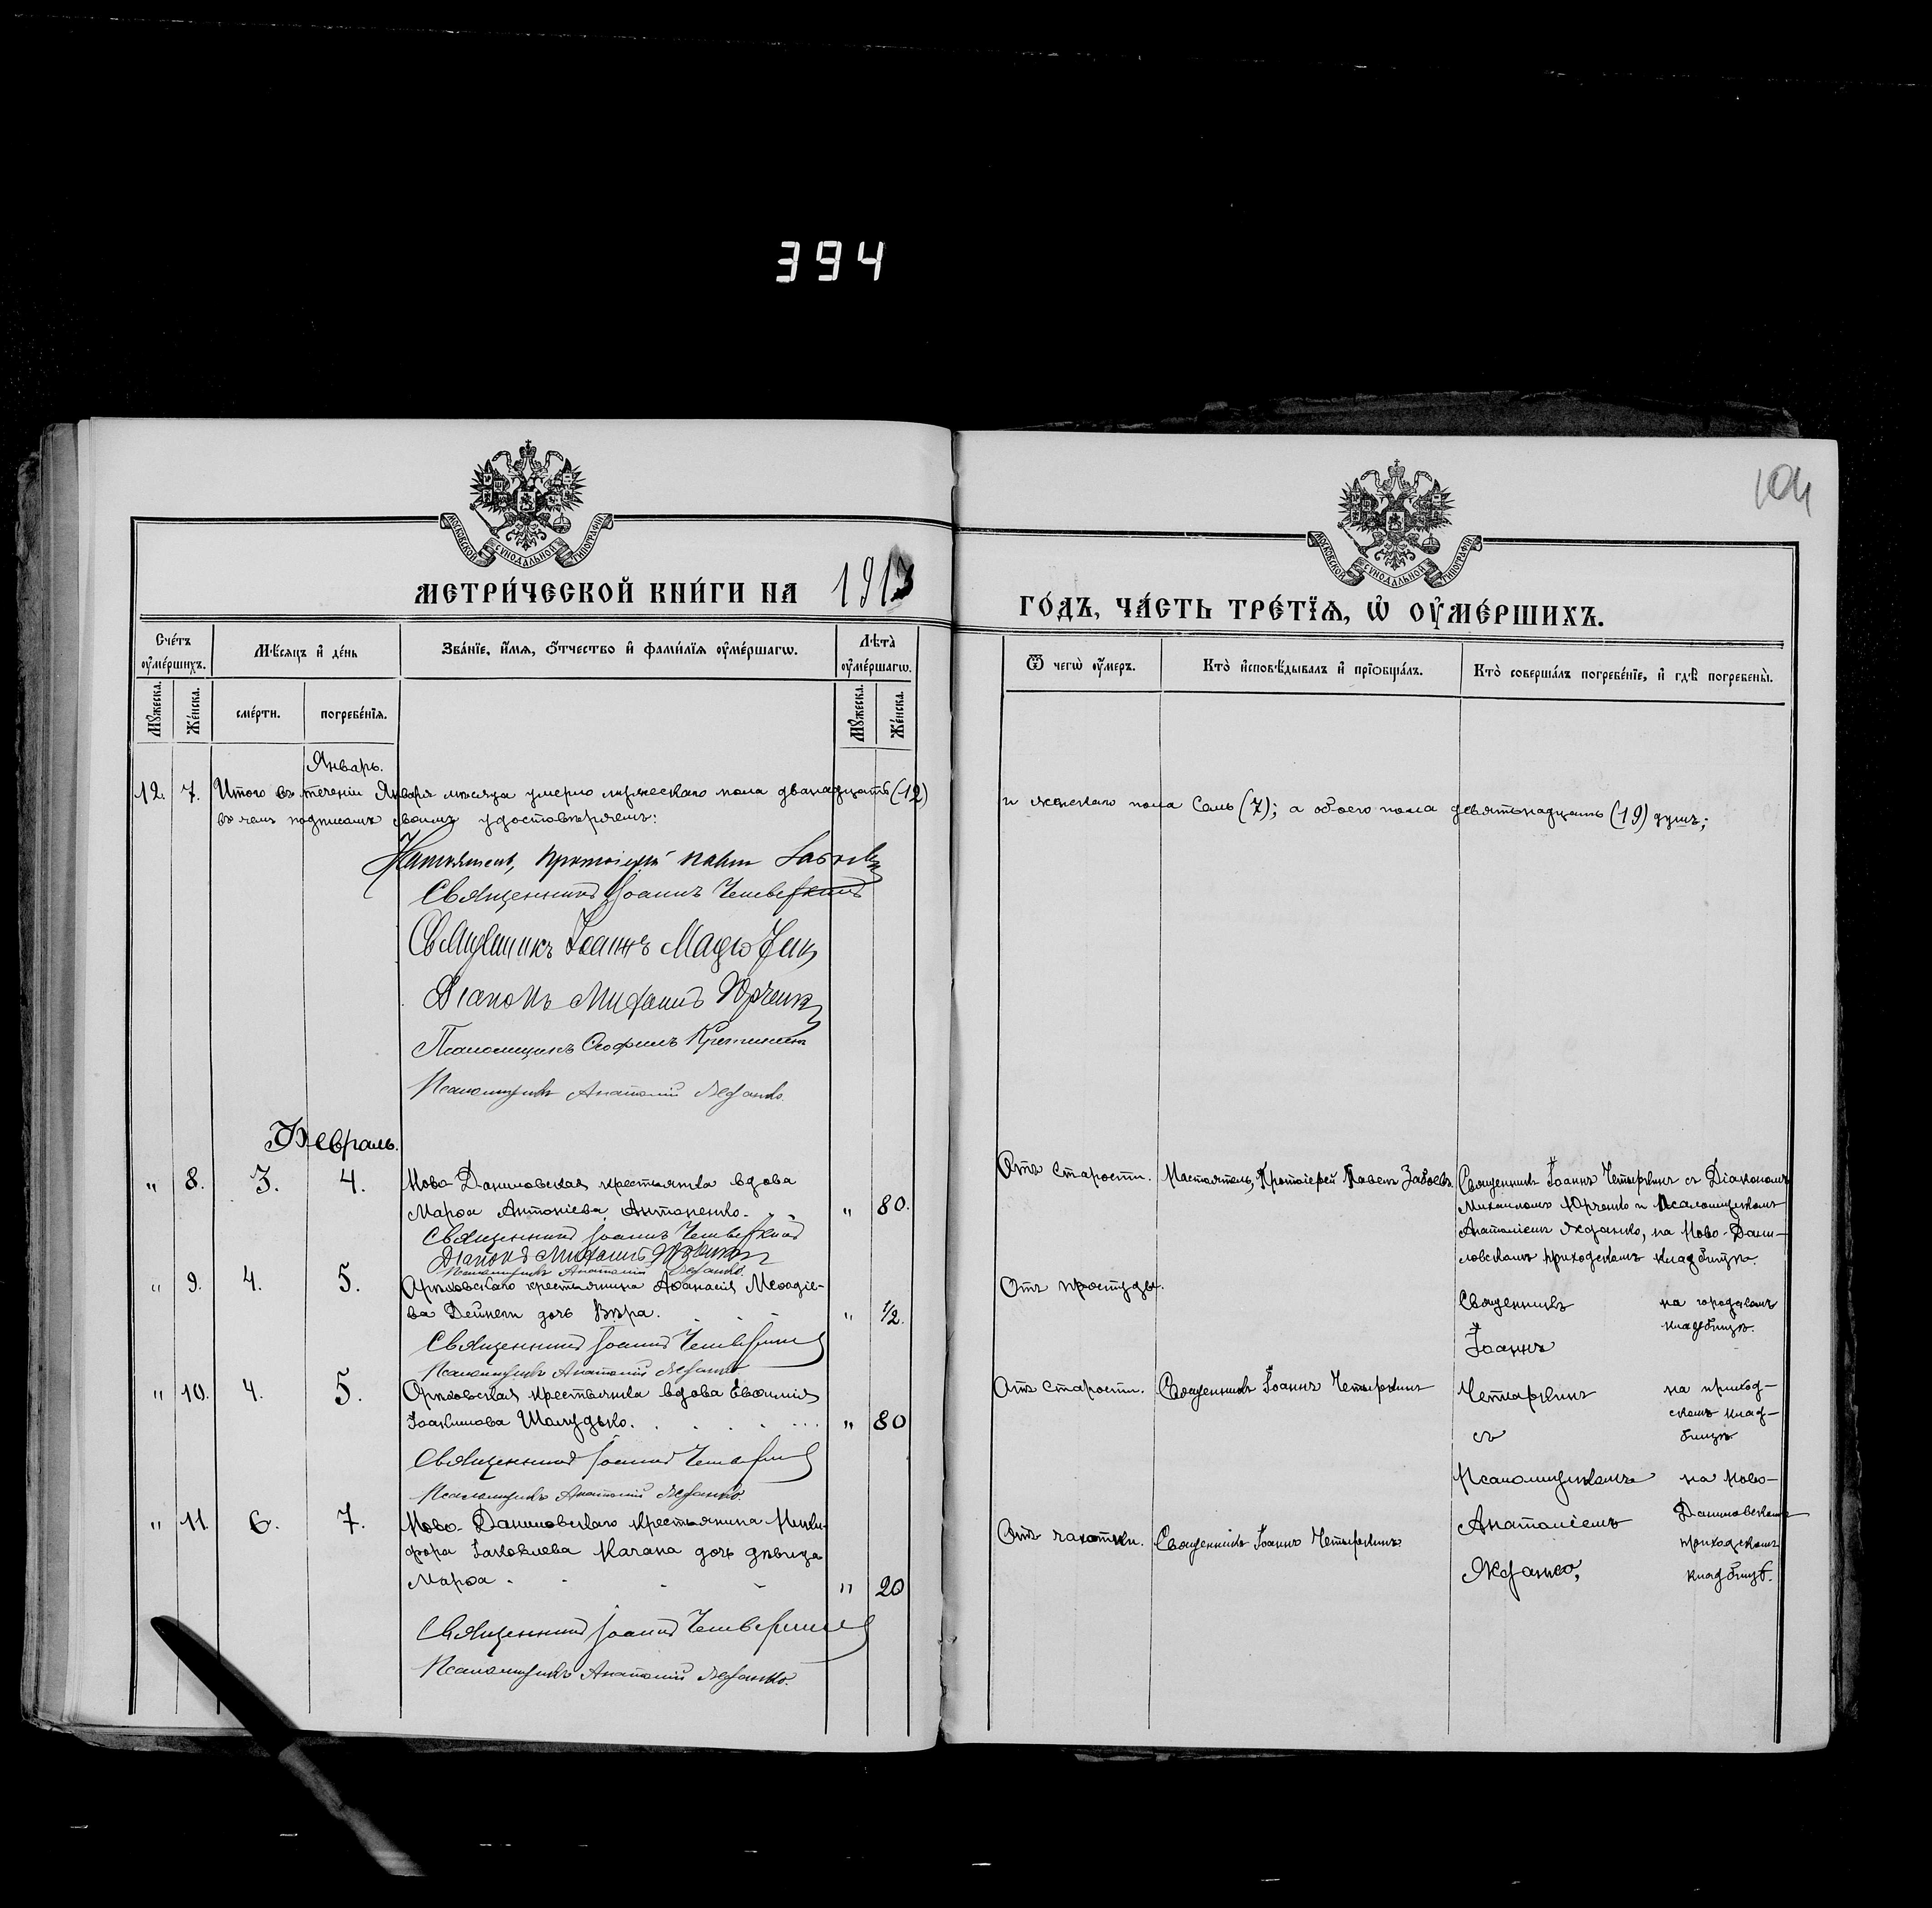 394
104
МОСКОВСКОЙ СѴНОДАЛЬНОЙ ТИПОГРАФІИ
МОСКОВСКОЙ СѴНОДАЛЬНОЙ ТИПОГРАФІИ
МЕТРИ́ЧЕСКОЙ КНИ́ГИ НА 1913
ГО́ДЪ, ЧА́СТЬ ТРЕ́ТЇѦ, Ѡ҆ ОУ҆МЕ́РШИХЪ.
Сче́тъ оу҆ме́ршихъ.
Мꙋ́жеска. Же́нска.
Мѣ́сяцъ и҆ де́нь
сме́рти. погребе́нїѧ.
Зва́нїе, и҆́мѧ, ѻ҆́тчество и҆ фамѝлїѧ оу҆ме́ршагѡ.
Лѣ́та оу҆ме́ршагѡ.
Мꙋ́жеска. Же́нска.
Ѿ чегѡ̀ оу҆́меръ.
Кто̀ и҆сповѣ́дывалъ и҆ прїѡбща́лъ.
Кто̀ соверша́лъ погребе́нїе, и҆ гдѣ̀ погребены̀.
Январь.
12. 7. Итого въ теченіи Января мѣсяца умерло мужескаго пола двѣнадцать (12) и женскаго пола семь (7); а обоего пола девятьнадцать (19) душъ;
въ чемъ подписомъ своимъ удостовѣряемъ:
Настоятель, Протоіерей Павелъ Забоевъ
Священникъ Іоаннъ Четверкинъ
Священникъ Іоаннъ
Діаконъ Михаилъ Юрченко
Псаломщикъ Ѳеофилъ
Псаломщикъ Анатолій Жданко.
Февраль.
" 8. 3. 4. Ново-Даниловская крестьянка вдова
Марѳа Антоніева Антоненко. " 80.
Священникъ Іоаннъ Четверкинъ
Діаконъ Михаилъ Юрченко
Псаломщикъ Анатолій Жданко.
Отъ старости. Настоятель, Протоіерей Павелъ Забоевъ.
Священникъ Іоаннъ Четыркинъ съ Діакономъ
Михаиломъ Юрченко и Псаломщикомъ
Анатоліемъ Жданко, на Ново-Дани-
ловскомъ приходскомъ кладбищѣ.
" 9. 4. 5. Орѣховскаго крестьянина Аѳанасія Меѳодіе-
ва Дейнеги дочь Вѣра. " 1/2.
Священникъ Іоаннъ Четверкинъ
Псаломщикъ Анатолій Жданко
Отъ простуды.
Священникъ на городскомъ
кладбищѣ.
Іоаннъ
" 10. 4. 5. Орѣховская крестьянка вдова Евѳимія
Іоакимова Шолудько. " 80
Священникъ Іоаннъ Четверкинъ
Псаломщикъ Анатолій Жданко.
Отъ старости. Священникъ Іоаннъ Четыркинъ
Четыркинъ на приход-
скомъ клад-
съ бищѣ
Псаломщикомъ на Ново-
" 11. 6. 7. Ново-Даниловскаго крестьянина Ники-
фора Іаковлева Качана дочь дѣвица
Марѳа " 20
Священникъ Іоаннъ Четверкинъ
Псаломщикъ Анатолій Жданко.
Отъ чахотки. Священникъ Іоаннъ Четыркинъ
Анатоліемъ Даниловскомъ
приходскомъ
Жданко, кладбищѣ.